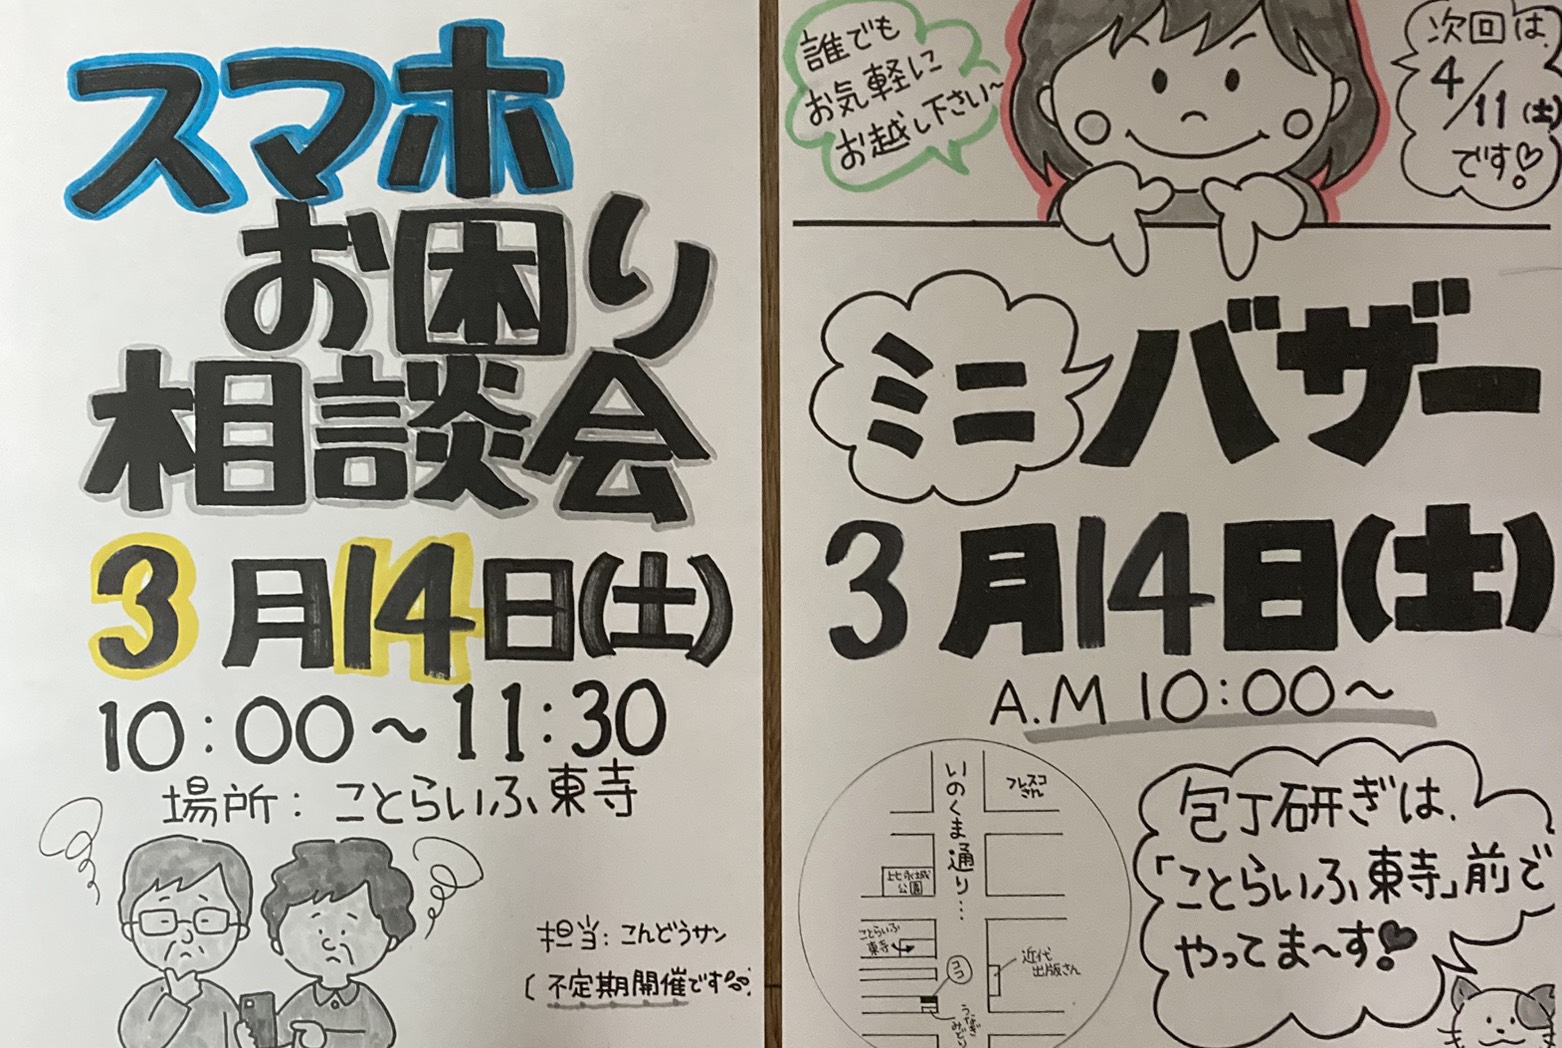 スマホ
お困り
相談会
3月14日(土)
10:00～11:30
場所：ことらいふ東寺
担当：こんどうサン
(不定期開催です
誰でも
お気軽に
お越し下さい～
次回は、
4/11(土)
です♡
ミニバザー
3月14日(土)
A.M 10:00～
いのくま通り…
フレスコ
さん
比永城
公園
ことらいふ
東寺
ココ
近代
出版さん
うなぎ
みどり
包丁研ぎは、
「ことらいふ東寺」前で
やってま～す♥